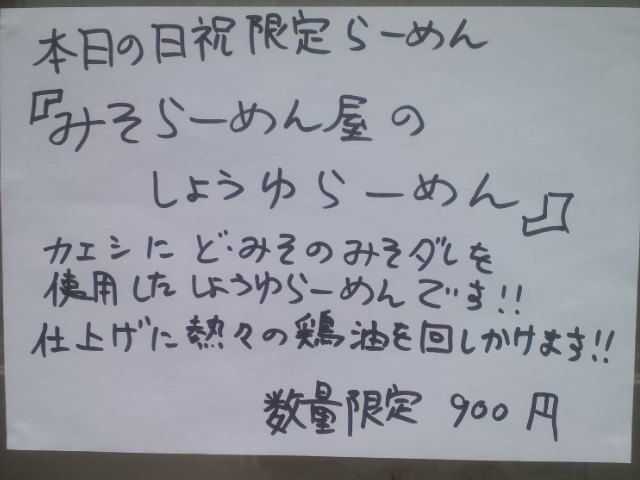 本日の日祝限定らーめん
『みそらーめん屋の
しょうゆらーめん』
カエシにど・みそのみそダレを
使用したしょうゆらーめんです!!
仕上げに熱々の鶏油を回しかけます!!
数量限定 900円